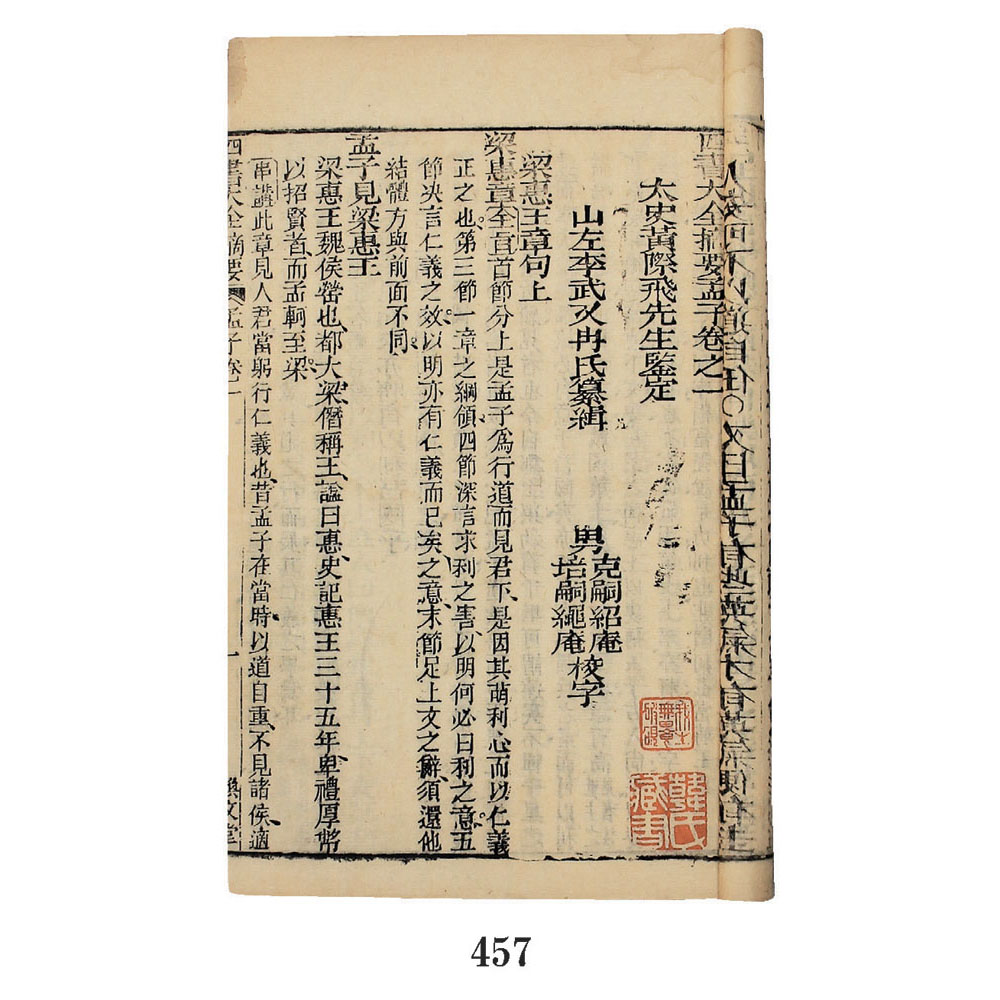 四書大全摘要孟子卷之一
太史黃際飛先生鑒定
山左李武又冉氏纂緝
男 克嗣紹庵
培嗣繩庵 校字
梁惠王章句上
梁惠章全旨首節分上是孟子為行道而見君下是因其萌利心而以仁義
正之也第三節一章之綱領四節深言求利之害以明何必曰利之意五
節決言仁義之效以明亦有仁義而已矣之意末節足上文之辭須還他
結體方與前面不同
孟子見梁惠王
梁惠王魏侯罃也都大梁僭稱王諡曰惠史記惠王三十五年卑禮厚幣
以招賢者而孟軻至梁
串講此章見人君當躬行仁義也昔孟子在當時以道自重不見諸侯適
四書大全摘要 孟子卷一 一
韓氏藏書
457